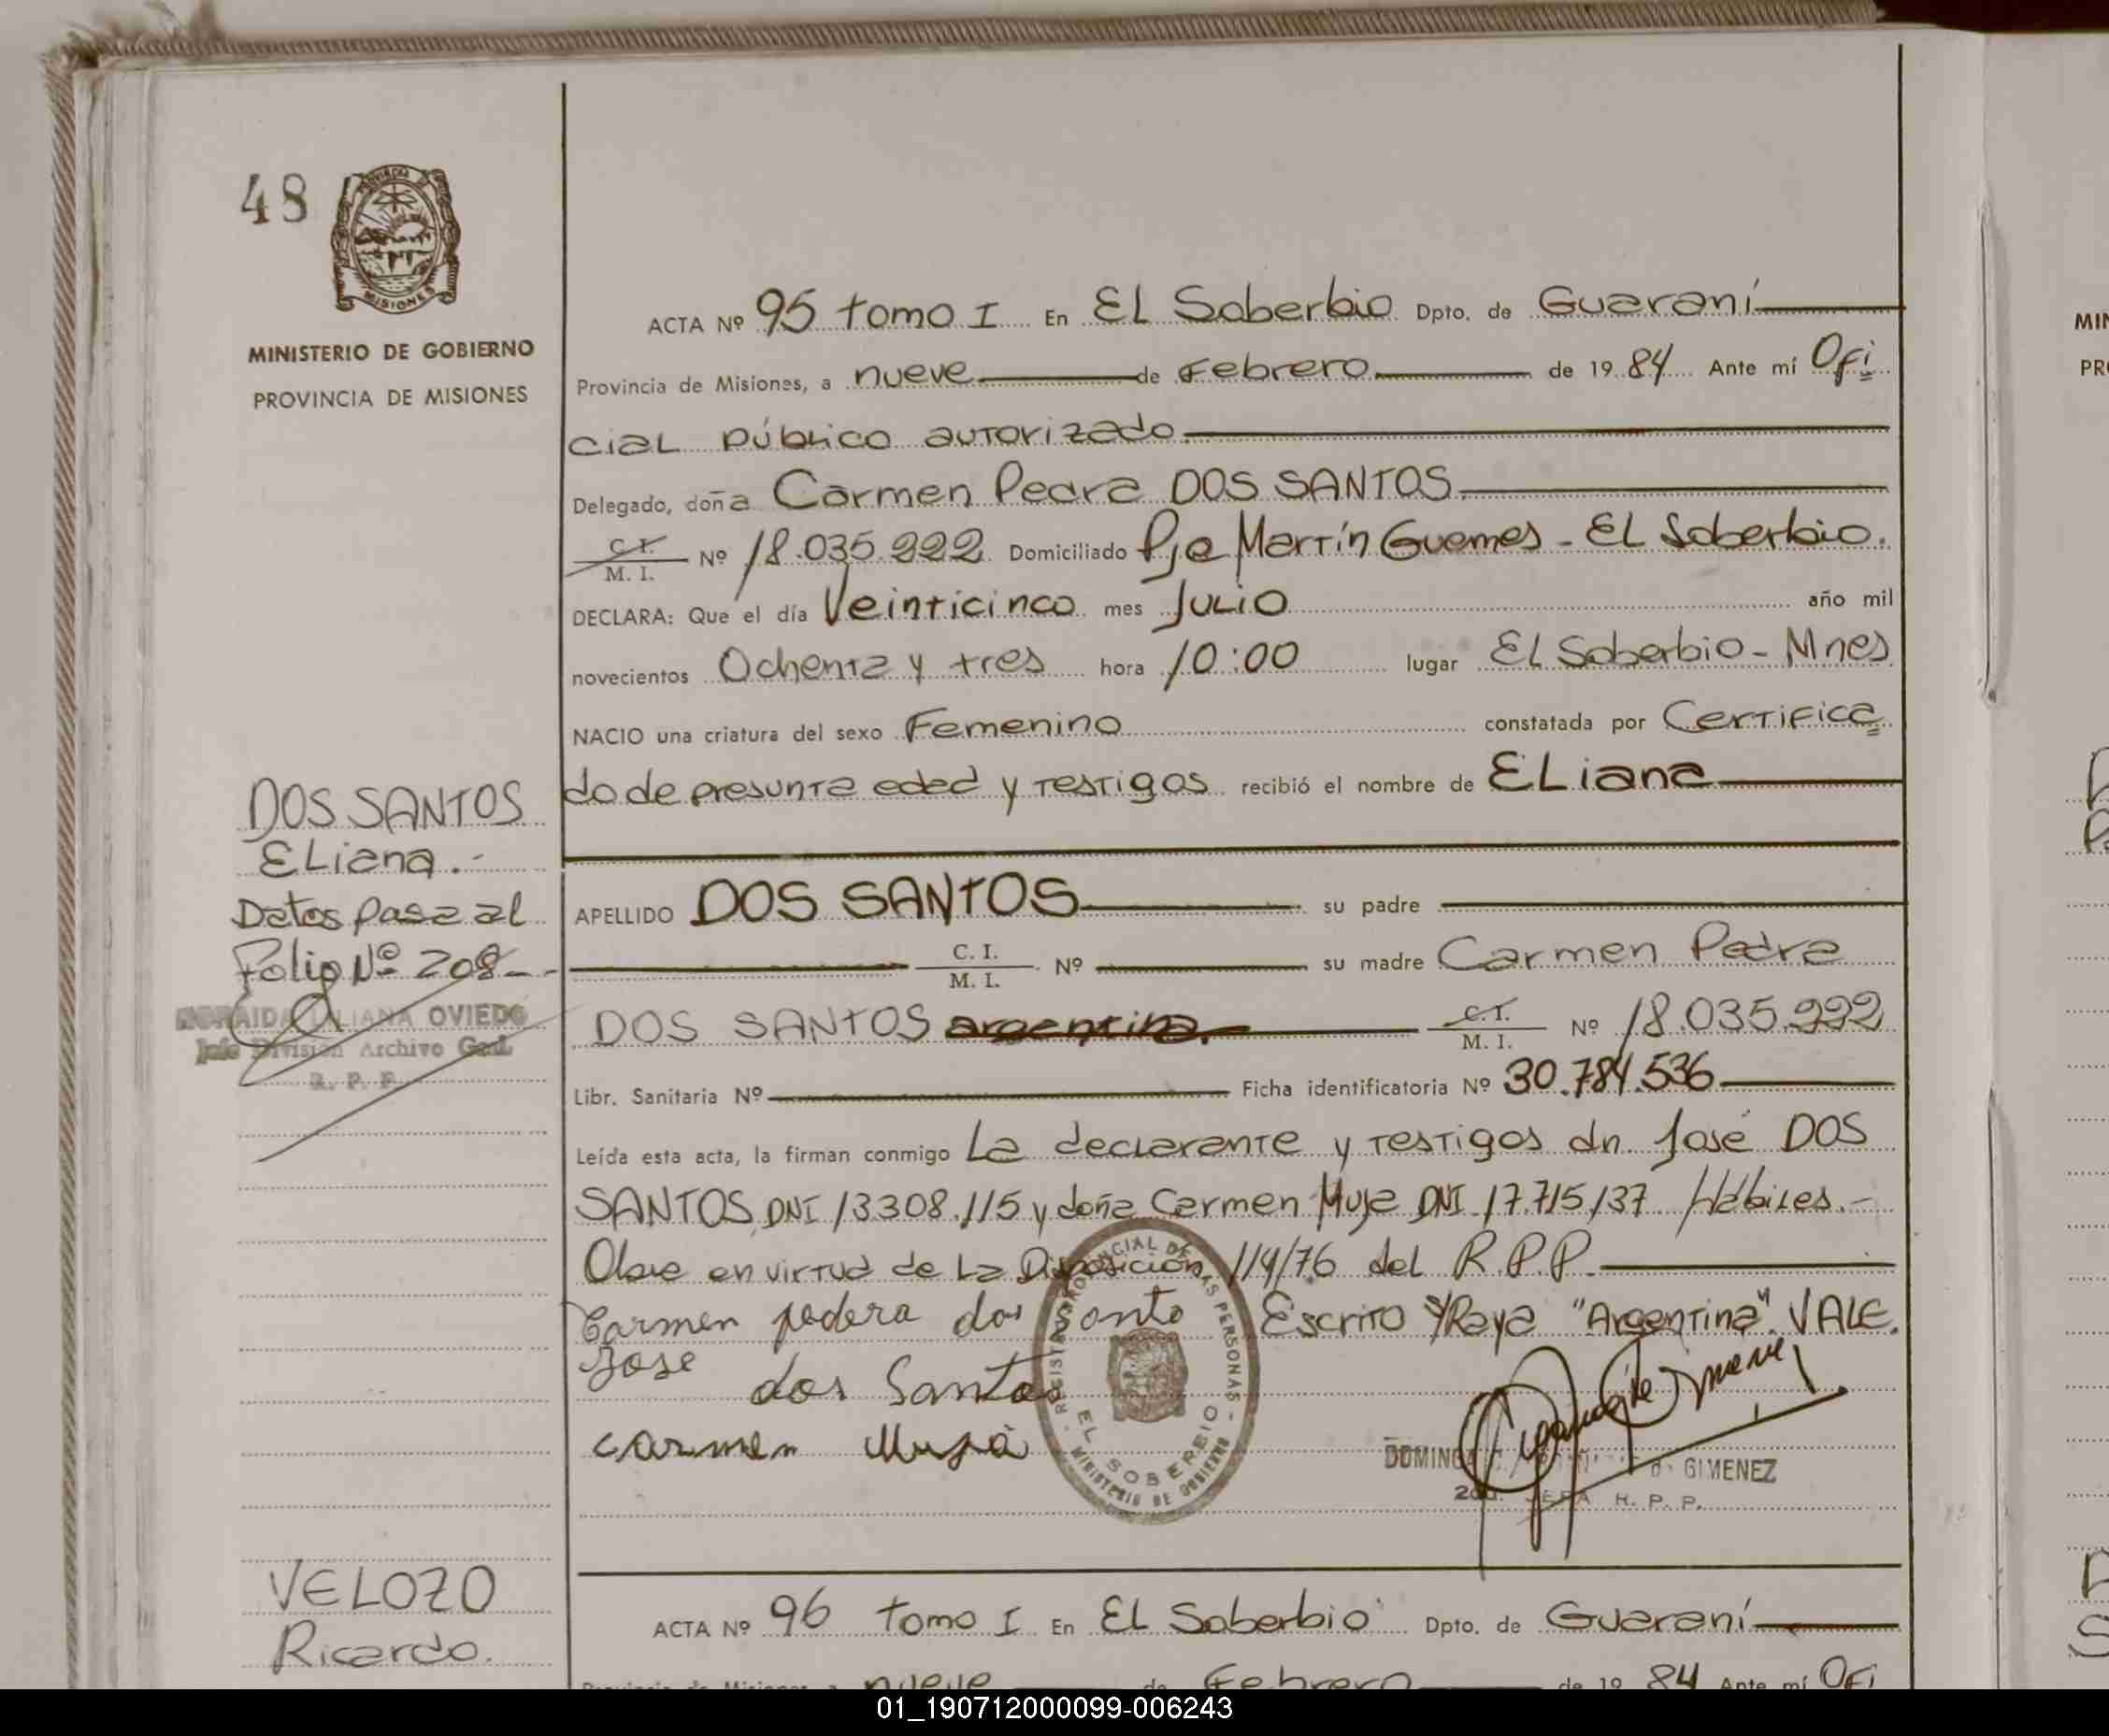 48
PROVINCIA DE
MISIONES
MINISTERIO DE GOBIERNO
PROVINCIA DE MISIONES
ACTA Nº 95 tomo I En EL Soberbio Dpto. de Guaraní
Provincia de Misiones, a nueve de Febrero de 1984 Ante mí Ofi
cial público autorizado
Delegado, doña Carmen Pedra DOS SANTOS
C. I.
M. I. Nº 18.035.222 Domiciliado Pje Martín Guemes - EL Soberbio.
DECLARA: Que el día Veinticinco mes Julio año mil
novecientos Ochenta y tres hora 10:00 lugar EL Soberbio - Mnes
NACIO una criatura del sexo Femenino constatada por Certifica
do de presunta edad y testigos recibió el nombre de ELiana
DOS SANTOS
ELiana.-
Datos pasa al
Folio Nº 208-
OVIEDO
Jefe División Archivo Gral.
R. P. P.
APELLIDO DOS SANTOS su padre
C. I.
M. I. Nº su madre Carmen Pedra
DOS SANTOS argentina C. I.
M. I. Nº 18.035.222
Libr. Sanitaria Nº Ficha identificatoria Nº 30.784.536
Leída esta acta, la firman conmigo La declarante y testigos dn José DOS
SANTOS DNI 13.308.115 y doña Carmen DNI 17.715.137 Hábiles.-
Obre en virtud de La Disposición 114/76 del R.P.P.
Carmen pedera dos santo Escrito s/Raya "Argentina" VALE.
Jose dos Santos
carmen
REGISTRO PROVINCIAL DE LAS PERSONAS - EL SOBERBIO - MINISTERIO DE GOBIERNO
GIMENEZ
JEFA R. P. P.
VELOZO
Ricardo.
ACTA Nº 96 tomo I En EL Soberbio Dpto. de Guaraní
Provincia de Misiones, a nueve de Febrero de 1984 Ante mí Ofi
MIN
PRO
01_190712000099-006243